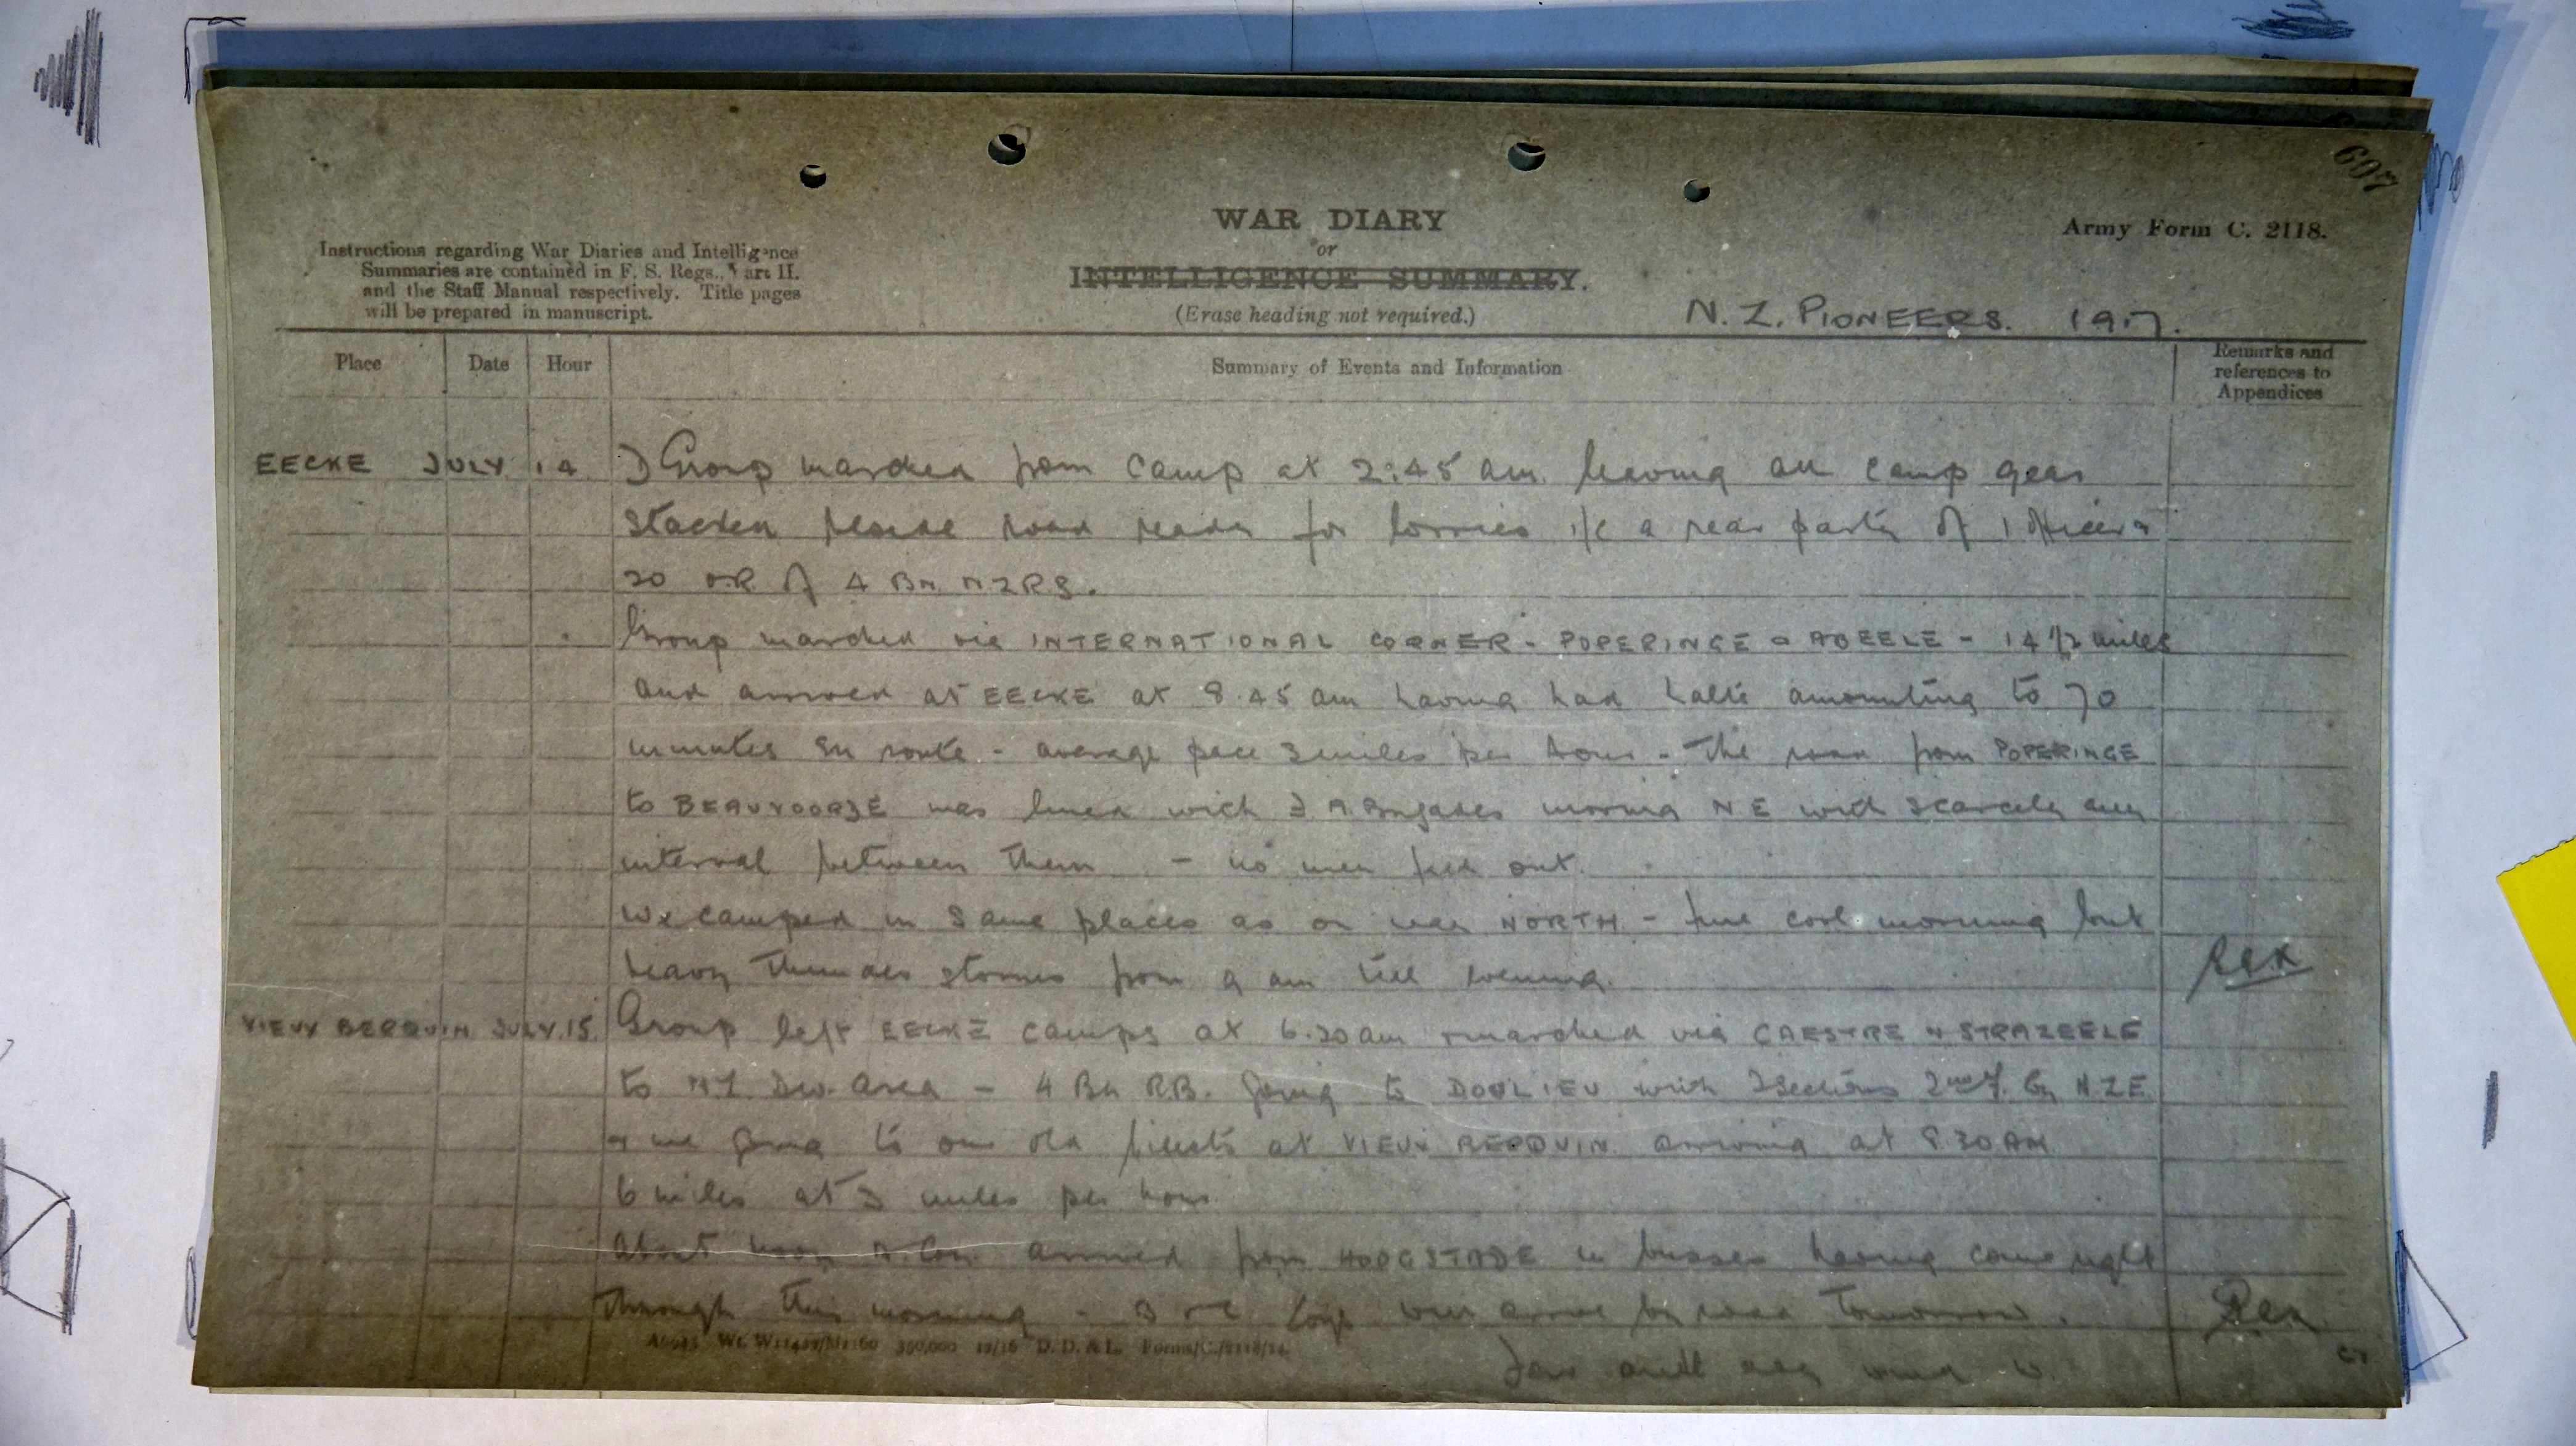 607
WAR DIARY
or
INTELLIGENCE SUMMARY.
(Erase heading not required.)
Army Form C. 2118.
Instructions regarding War Diaries and Intelligence
Summaries are contained in F. S. Regs., Part II.
and the Staff Manual respectively. Title pages
will be prepared in manuscript.
N. Z. PIONEERS. 1917.
Place Date Hour Summary of Events and Information Remarks and
references to
Appendices
EECKE JULY 14 Group marched from camp at 2:45 am. leaving all camp gear
stacked beside road ready for lorries i/c a rear party of 1 officer &
20 O.R. of 4 Bn. NZRB.
Group marched via INTERNATIONAL CORNER - POPERINGE & ABEELE - 14 1/2 miles
and arrived at EECKE at 8.45 am having had halts amounting to 70
minutes en route - average pace 3 miles per hour - The road from POPERINGE
to BEAUVOORDE was lined with F.A. Brigades moving N E with scarcely any
interval between them - no men fell out.
We camped in same places as on way NORTH - fine cool morning but
heavy thunder storms from 9 am till evening.
VIEUX BERQUIN JULY.15. Group left EECKE camps at 6.30 am & marched via CAESTRE & STRAZEELE
to NZ Div. Area - 4 Bn R.B. going to DOULIEU with 2 Sections 2nd F. Coy N.Z.E.
& we going to our old billets at VIEUX BERQUIN arriving at 8.30 AM
6 miles at 3 miles per hour.
About noon A. Coy. arrived from HOOGSTADE in busses having come right
through this morning - B & C Coys will arrive by road tomorrow.
wind W.
350,000 12/16 D. D. & L. Forms/C./2118/14.